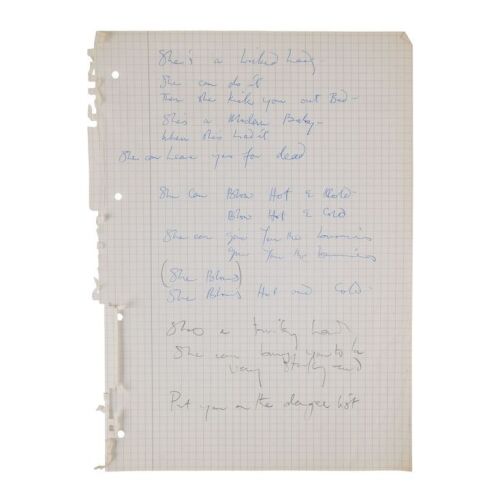 She's a Wicked Lady
She can do it
Then she kicks you out Bed-
She's a Modern Baby-
When she's had it
She can leave you for dead
She Can Blow Hot & Cold-
Blow Hot & Cold
She can give You the
Give You the
(She Blows)
She Blows Hot and Cold-
She's a lady
She can bring you to
very end
Put you on the danger list